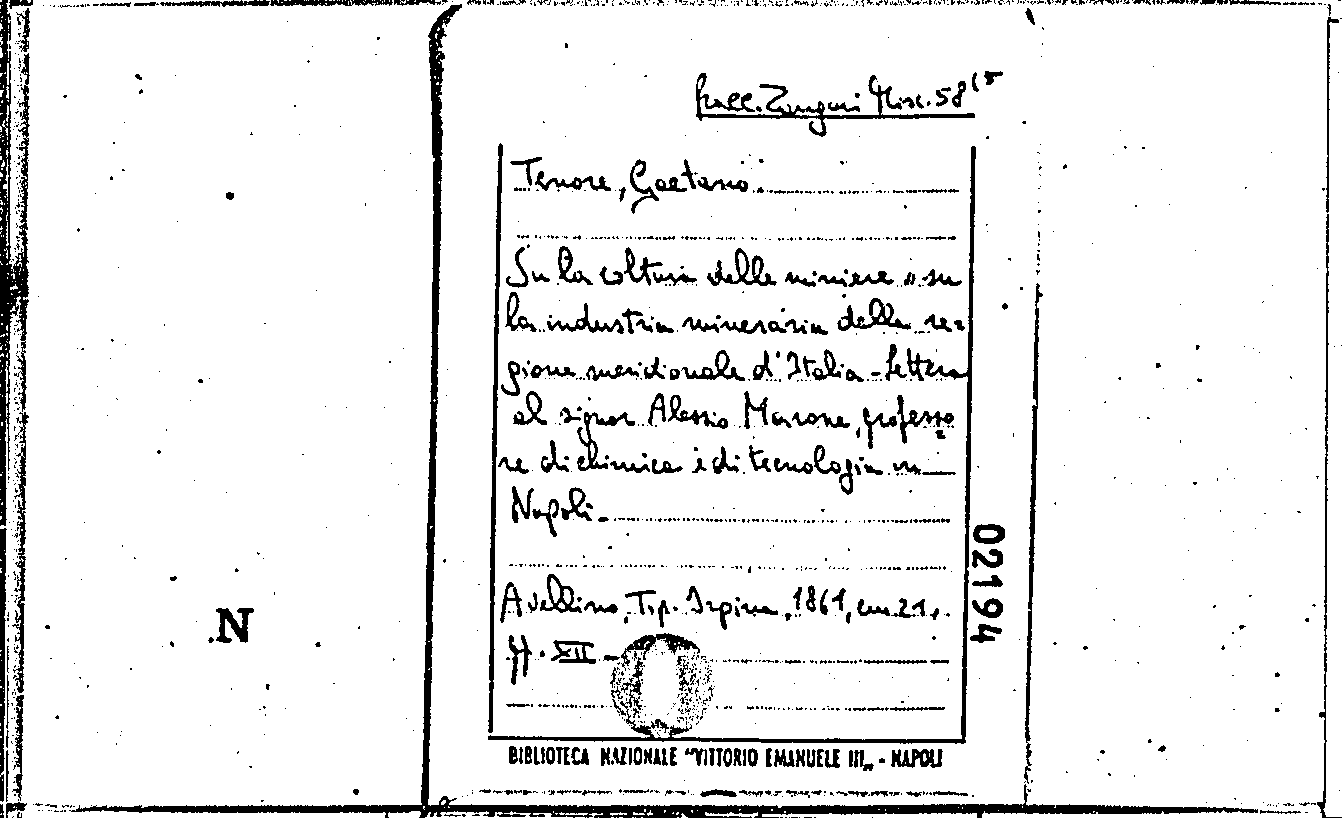 Coll. Zangari Misc. 58 (5
Tenore, Gaetano.
Su la coltura delle miniere e su
la industria mineraria della re=
gione meridionale d'Italia - Lettera
al signor Alessio Marone, professo
re di chimica e di tecnologia in
Napoli -
Avellino, Tip. Irpina, 1861, cm 21,
ff. XII -
BIBLIOTECA NAZIONALE "VITTORIO EMANUELE III„ - NAPOLI
02194
N